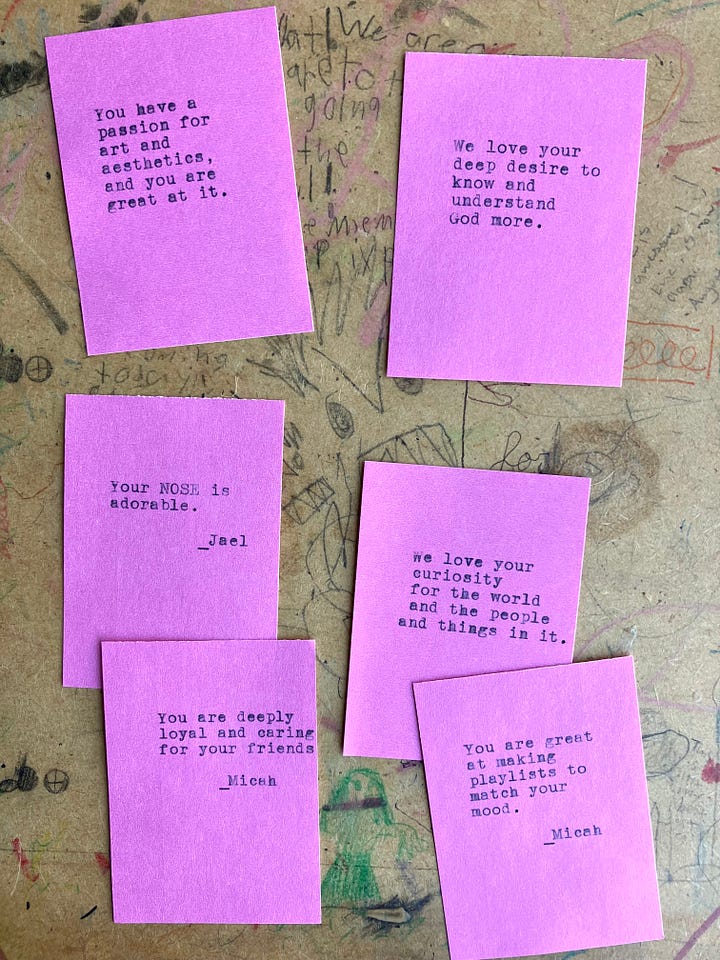 You have a
passion for
art and
aesthetics,
and you are
great at it.
We love your
deep desire to
know and
understand
God more.
Your NOSE is
adorable.
_Jael
We love your
curiosity
for the world
and the people
and things in it.
You are deeply
loyal and caring
for your friends
_Micah
You are great
at making
playlists to
match your
mood.
_Micah
We are
going
the
today
for